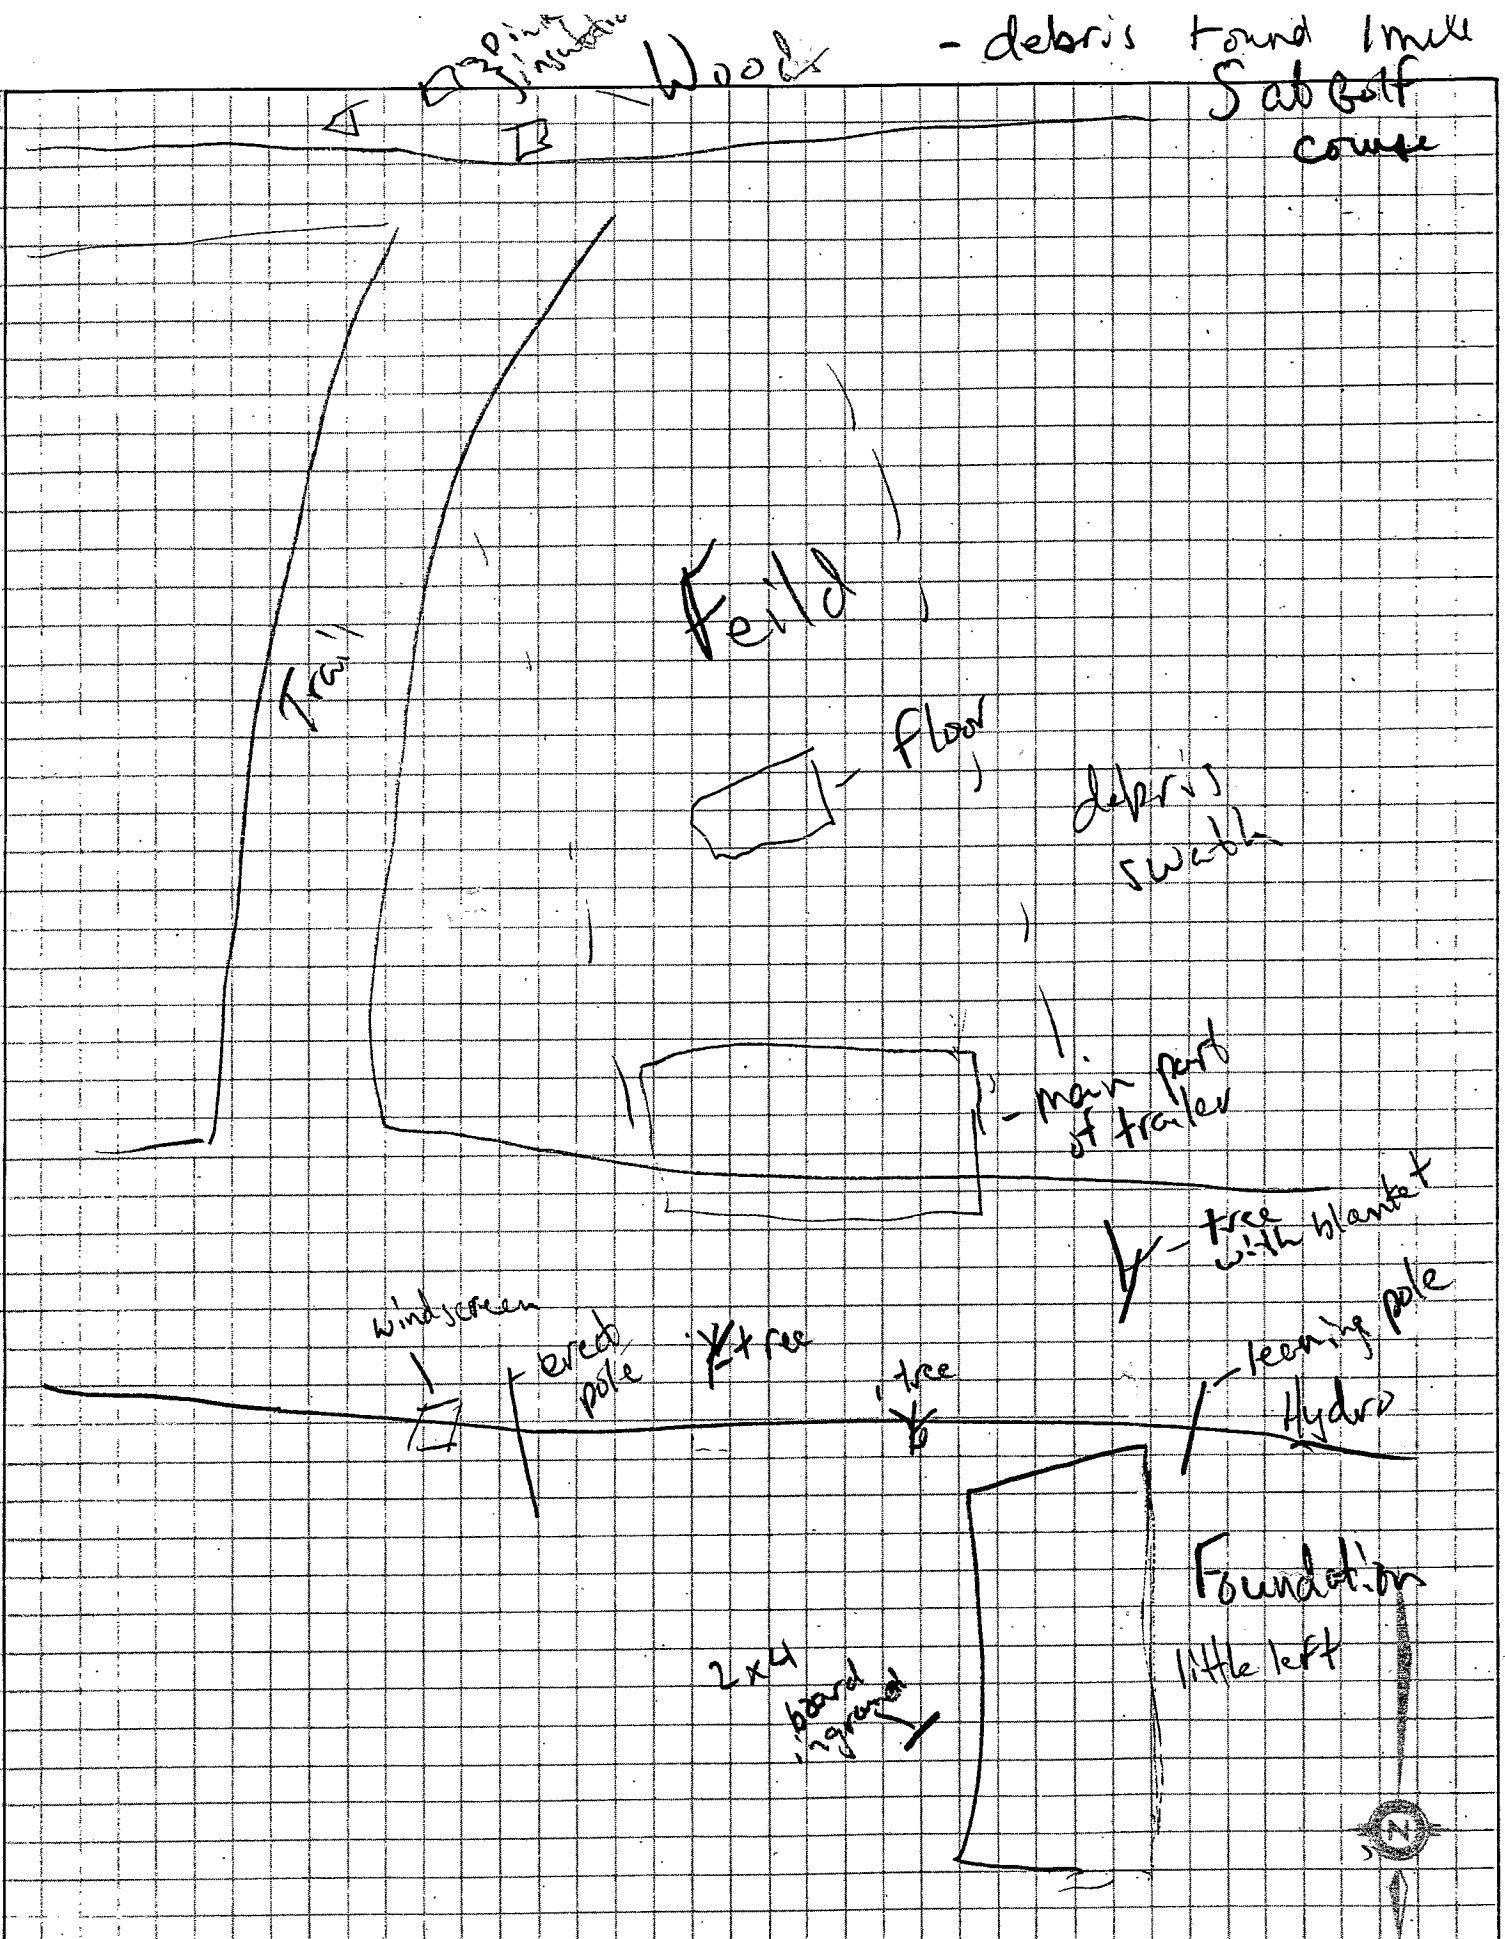 pink
insulation
Woods
- debris found 1 mile
S at Golf
course
Trail
Feild
floor
debris
swath
- main part
of trailer
- tree
with blanket
windscreen
erect
pole
tree
tree
- leaning pole
Hydro
Foundation
little left
2x4
board
in ground
N